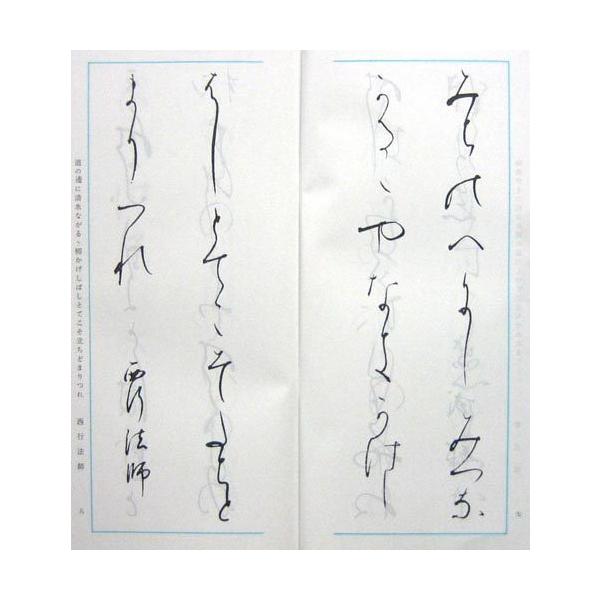 みちのへにしみつな
かるゝやなきかけし
はしとてこそたちと
まりつれ　西行法師
道の邊に清水ながるゝ柳かげしばしとてこそ立ちどまりつれ　西行法師